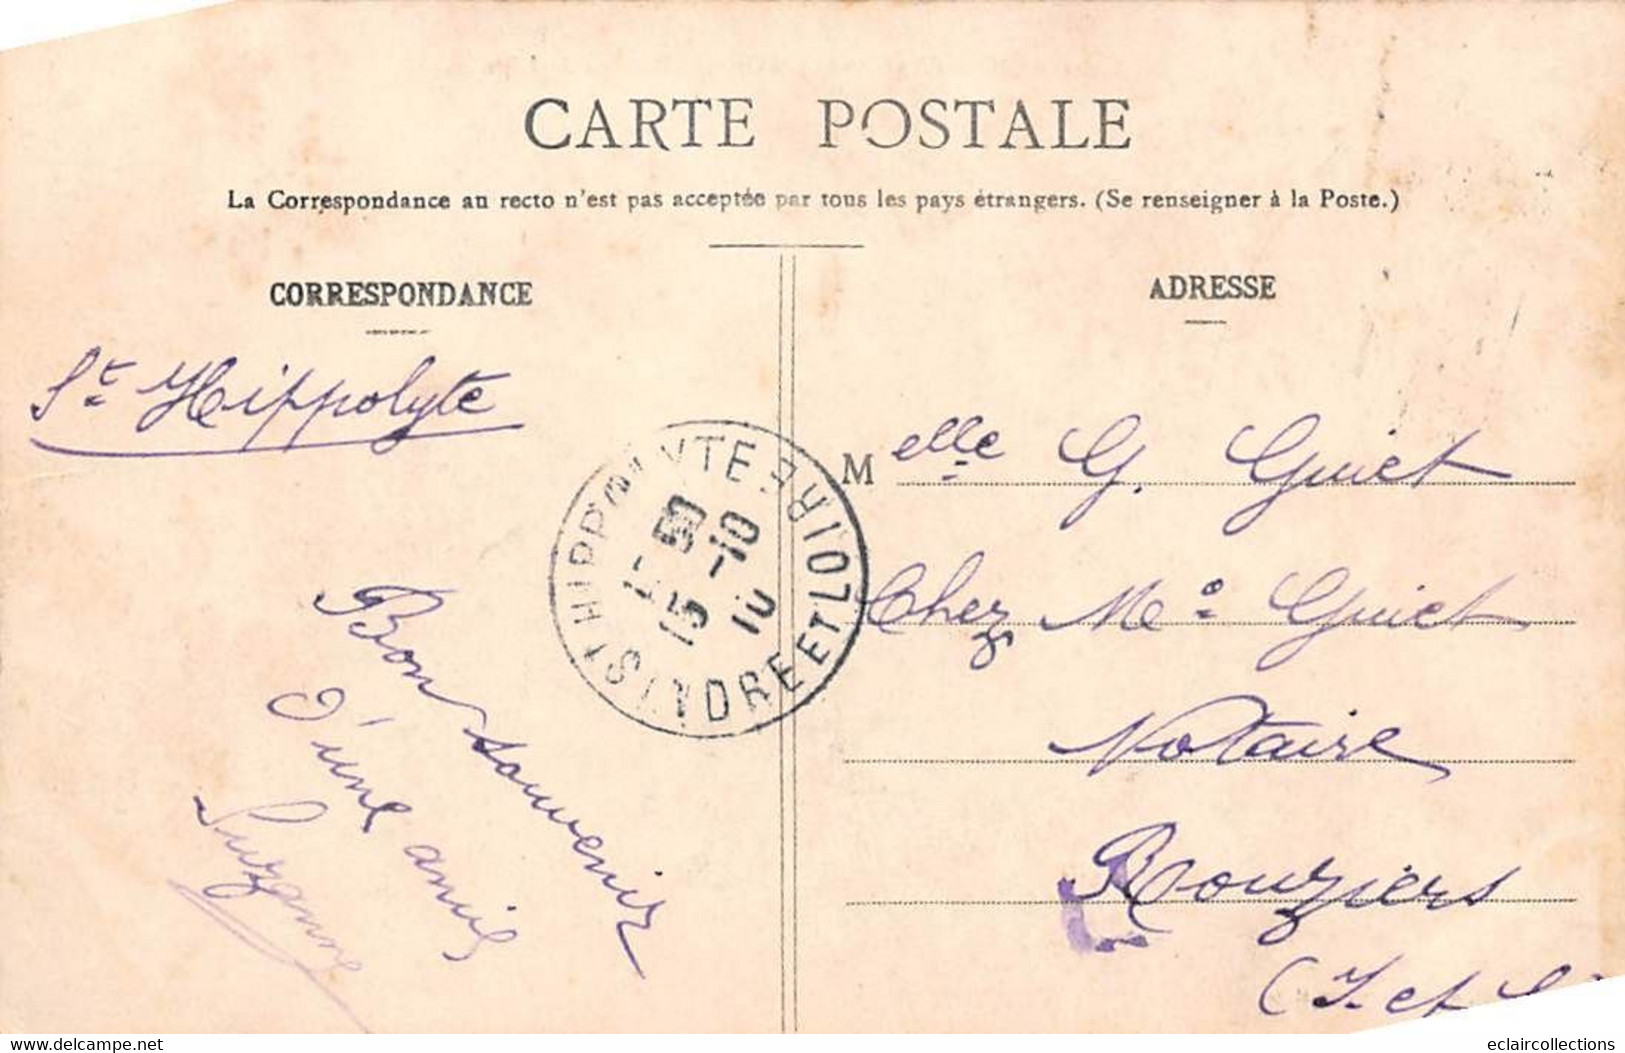 CARTE POSTALE
La Correspondance au recto n'est pas acceptée par tous les pays étrangers. (Se renseigner à la Poste.)
CORRESPONDANCE
St Hippolyte
Bon souvenir
d'une amie
Suzanne
ST HIPPOLYTE
15-10
10
INDRE ET LOIRE
ADRESSE
Melle G. Guiet
Chez Me Guiet
Notaire
Rouziers
(I. et L
delcampe.net
eclaircollections